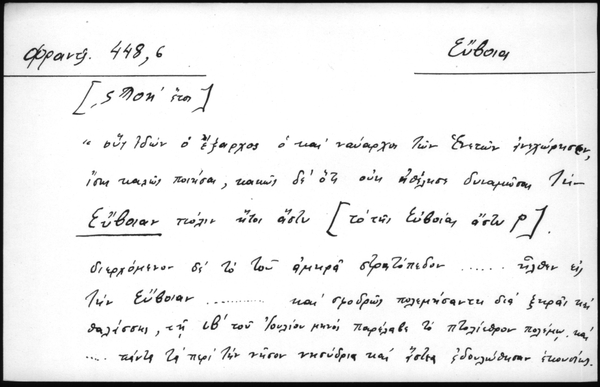 Φραντζ. 448,6 Εὔβοια
[,ςϠοη' ἔτει]
" οὓς ἰδὼν ὁ ἔξαρχος ὁ καὶ ναύαρχος τῶν Ἐνετῶν ἀνεχώρησεν,
ἴσως καλῶς ποιήσας, κακῶς δὲ ὅτι οὐκ ἠθέλησε δυναμῶσαι τὴν
Εὔβοιαν πόλιν ἤτοι ἄστυ [τὸ τῆς Εὐβοίας ἄστυ P].
διερχόμενον δὲ τὸ τοῦ ἀμηρᾶ στρατόπεδον ...... ἦλθεν εἰς
τὴν Εὔβοιαν ............ καὶ σφοδρῶς πολεμήσαντες διὰ ξηρᾶς καὶ
θαλάσσης, τῇ ιβ' τοῦ Ἰουλίου μηνὸς παρέλαβε τὸ πτολίεθρον πολέμῳ. καὶ
..... πάντα τὰ περὶ τὴν νῆσον νησύδρια καὶ ἄστεα ἐδουλώθησαν ἑκουσίως.